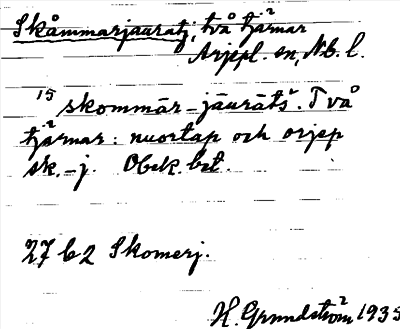 Skåmmarjauratj, två tjärnar
Arjepl. sn, N.B. l.
15 skommār-jāurātš. Två
tjärnar: nuortap och orjep
sk.-j. Obek. bet.
27 b 2 Skomerj.
H. Grundström 1935